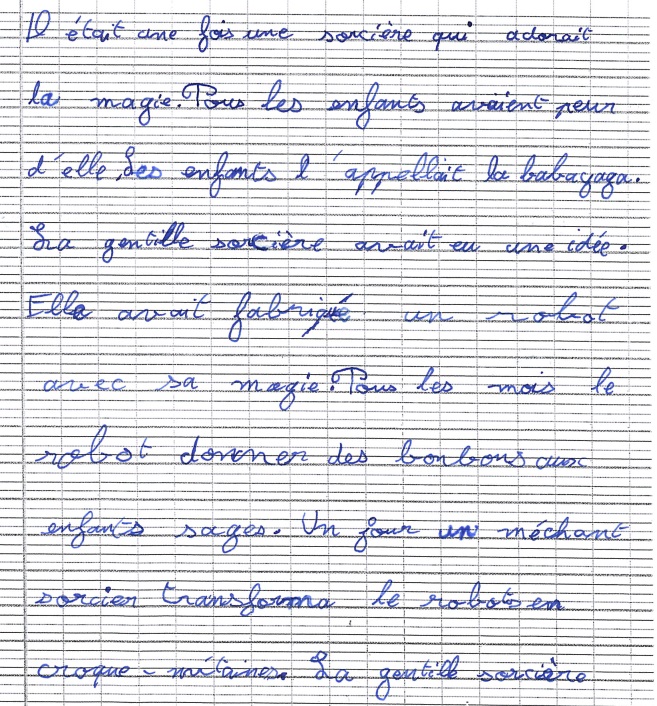 Il était une fois une sorcière qui adorait
la magie. Tous les enfants avaient peur
d'elle, Les enfants l'appellait la babayaga.
La gentille sorcière avait eu une idée.
Elle avait fabriqué un robot
avec sa magie. Tous les mois le
robot donner des bonbons aux
enfants sages. Un jour un méchant
sorcier transforma le robots en
croque-mitaines. La gentille sorcière